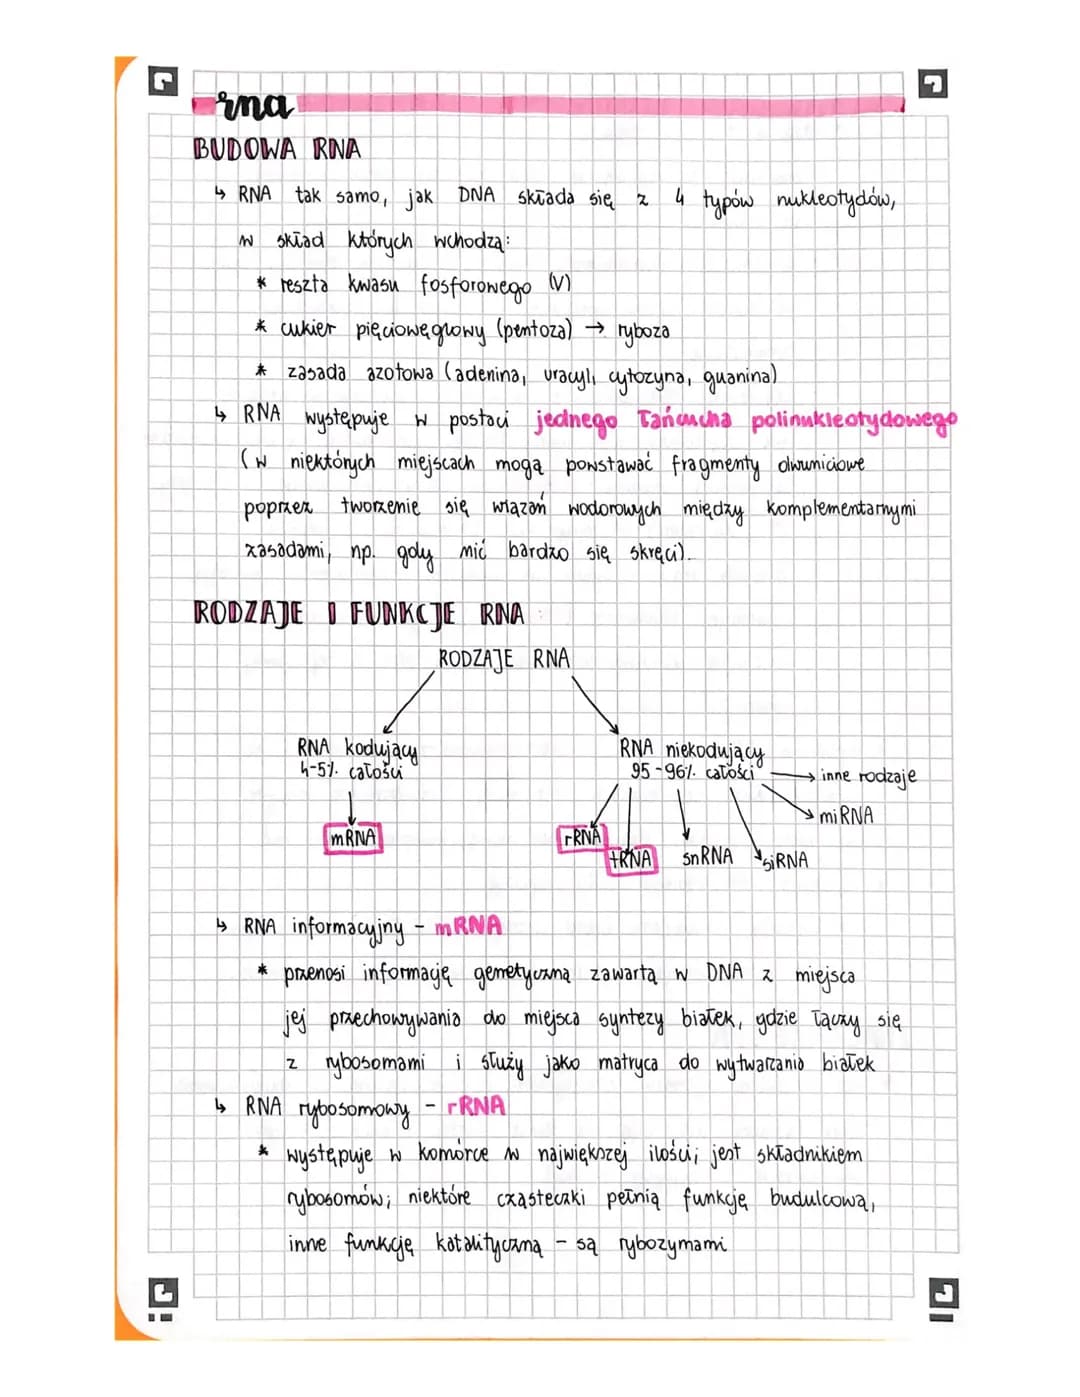 rna
BUDOWA RNA
↳ RNA tak samo, jak DNA składa się z 4 typów nukleotydów,
w skład których wchodzą:
* reszta kwasu fosforowego (V)
* cukier pięciowęglowy (pentoza) → ryboza
* zasada azotowa (adenina, uracyl, cytozyna, guanina)
↳ RNA występuje w postaci jednego łańcucha polinukleotydowego
(w niektórych miejscach mogą powstawać fragmenty dwuniciowe
poprzez tworzenie się wiązań wodorowych między komplementarnymi
zasadami, np. gdy nić bardzo się skręci).
RODZAJE I FUNKCJE RNA
RODZAJE RNA
RNA kodujący
4-5% całości
mRNA
RNA niekodujący
95-96% całości
→ inne rodzaje
miRNA
rRNA
tRNA
snRNA
siRNA
↳ RNA informacyjny - mRNA
* przenosi informację genetyczną zawartą w DNA z miejsca
jej przechowywania do miejsca syntezy białek, gdzie łączy się
z rybosomami i służy jako matryca do wytwarzania białek
↳ RNA rybosomowy - rRNA
* występuje w komórce w największej ilości; jest składnikiem
rybosomów; niektóre cząsteczki pełnią funkcję budulcową,
inne funkcję katalityczną - są rybozymami